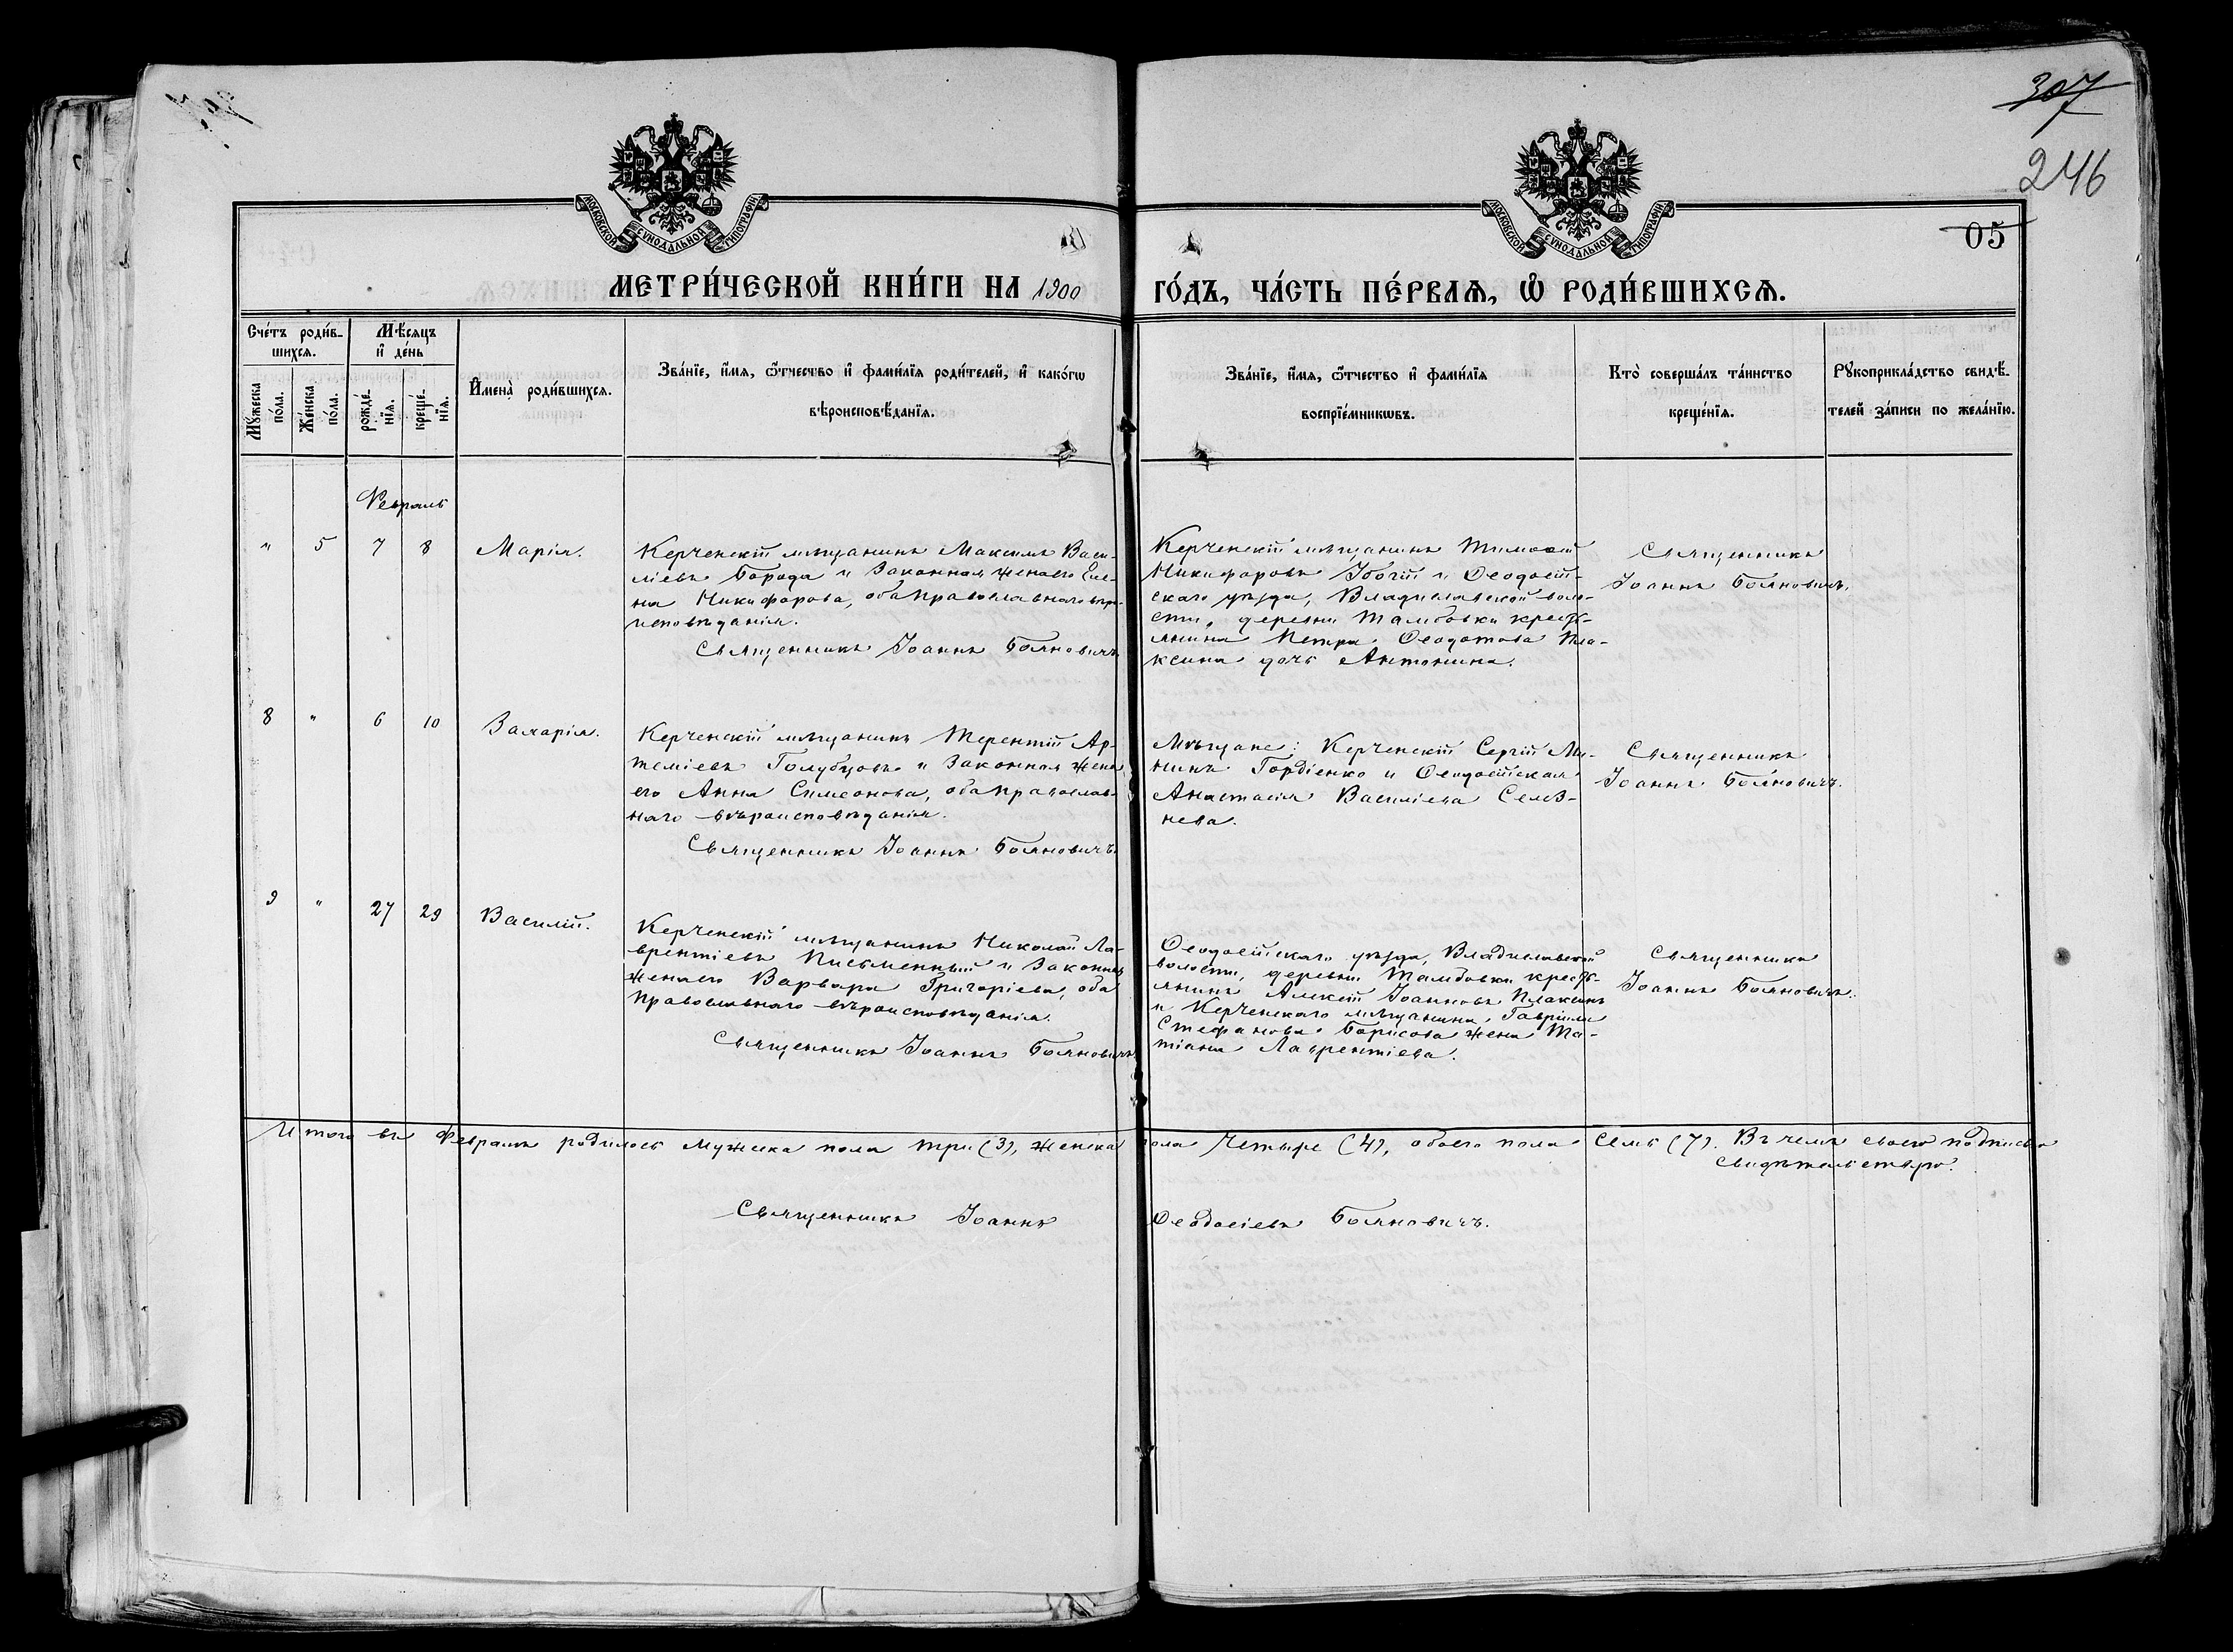 307
246
МОСКОВСКОЙ СУНОДАЛЬНОЙ ТИПОГРАФІИ
МОСКОВСКОЙ СУНОДАЛЬНОЙ ТИПОГРАФІИ
05
МЕТРИ́ЧЕСКОЙ КНИ́ГИ НА 1900 ГО́ДЪ, ЧА́СТЬ ПЕ́РВАѦ, Ѡ҆ РОДИ́ВШИХСѦ.
Сче́тъ роди́в-
шихсѧ.
Мꙋ́жеска
по́ла.
Же́нска
по́ла.
Мѣ́сяцъ
и҆ де́нь
рожде́-
нїѧ.
креще́-
нїѧ.
И҆мена̀ роди́вшихсѧ.
Зва́нїе, и҆́мѧ, ѻ҆́тчество и҆ фами́лїѧ роди́телей, и҆ како́гѡ
вѣроисповѣ́данїѧ.
Зва́нїе, и҆́мѧ, ѻ҆́тчество и҆ фами́лїѧ
воспрїе́мникѡвъ.
Кто̀ соверша́лъ та́инство
креще́нїѧ.
Рꙋкоприкла́дство свидѣ́-
телей за́писи по жела́нїю.
Февраль
" 5 7 8 Марія.
Керченскій мѣщанинъ Максимъ Васи-
ліевъ Борода и законная жена его Еле-
на Никифорова, оба православнаго вѣро-
исповѣданія.
Священникъ Іоаннъ Бояновичъ
Керченскій мѣщанинъ Тимоѳей
Никифоровъ Убогій и Ѳеодосій-
скаго уѣзда, Владиславской воло-
сти, деревни Тамбовки кресть-
янина Петра Ѳеодотова Пла-
ксина дочь Антонина.
Священникъ
Іоаннъ Бояновичъ.
8 " 6 10 Захарія.
Керченскій мѣщанинъ Терентій Ар-
теміевъ Голубцовъ и законная жена
его Анна Симеонова, оба православ-
наго вѣроисповѣданія.
Священникъ Іоаннъ Бояновичъ.
Мѣщане: Керченскій Сергій Ми-
нинъ Гордіенко и Ѳеодосійская
Анастасія Василіева Селез-
нева.
Священникъ
Іоаннъ Бояновичъ.
9 " 27 29 Василій.
Керченскій мѣщанинъ Николай Ла-
врентіевъ Письменный и законная
жена его Варвара Григоріева, оба
православнаго вѣроисповѣданія.
Священникъ Іоаннъ Бояновичъ
Ѳеодосійскаго уѣзда, Владиславской
волости, деревни Тамбовки кресть-
янинъ Алексій Іоанновъ Плаксинъ
и Керченскаго мѣщанина, Гавріила
Стефанова Борисова жена Та-
тіана Лаврентіева.
Священникъ
Іоаннъ Бояновичъ.
Итого въ Февралѣ родилось мужска пола три (3), женска пола четыре (4), обоего пола семь (7). Въ чемъ своею подписью
свидѣтельствую.
Священникъ Іоаннъ Ѳеодосіевъ Бояновичъ.